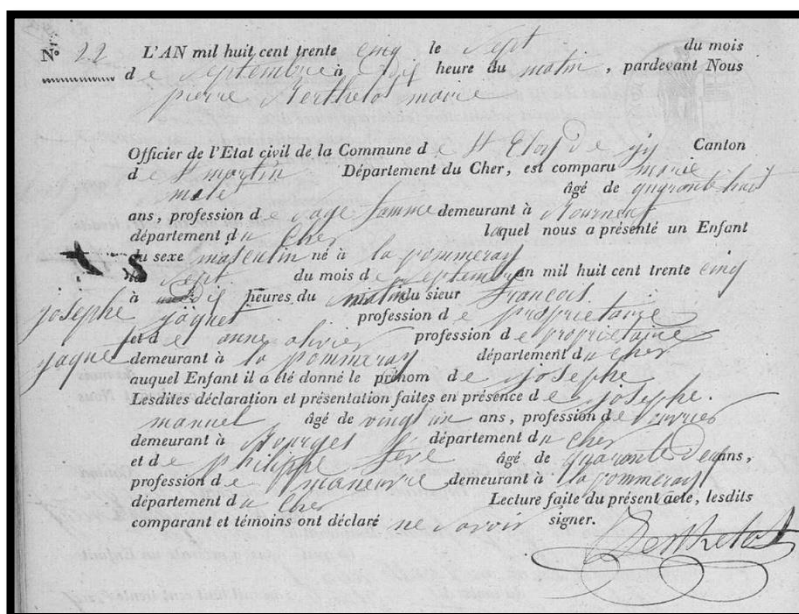 N.º 22 L'AN mil huit cent trente cinq le sept du mois
de septembre à dix heure du matin, pardevant Nous
pierre Berthelot maire
Officier de l'Etat civil de la Commune de St Eloy de gy Canton
de St martin Département du Cher, est comparu marie
malé âgé de quarante huit
ans, profession de sage famme demeurant à
département du Cher laquel nous a présenté un Enfant
du sexe masculin né à la pommeray
sept du mois de septembre an mil huit cent trente cinq
à dix heures du matin du sieur François
josephe jaquet profession de propriétaire
et de anne olivier profession de propriétaire
jaquet demeurant à la pommeray département du Cher
auquel Enfant il a été donné le prénom de josephe
Lesdites déclaration et présentation faites en présence de josephe
manuel âgé de vingt un ans, profession de ouvrier
demeurant à Bourges département du Cher
et de philippe âgé de quarante deux ans,
profession de maneuvre demeurant à la pommeray
département du Cher Lecture faite du présent acte, lesdits
comparant et témoins ont déclaré ne savoir signer.
Berthelot